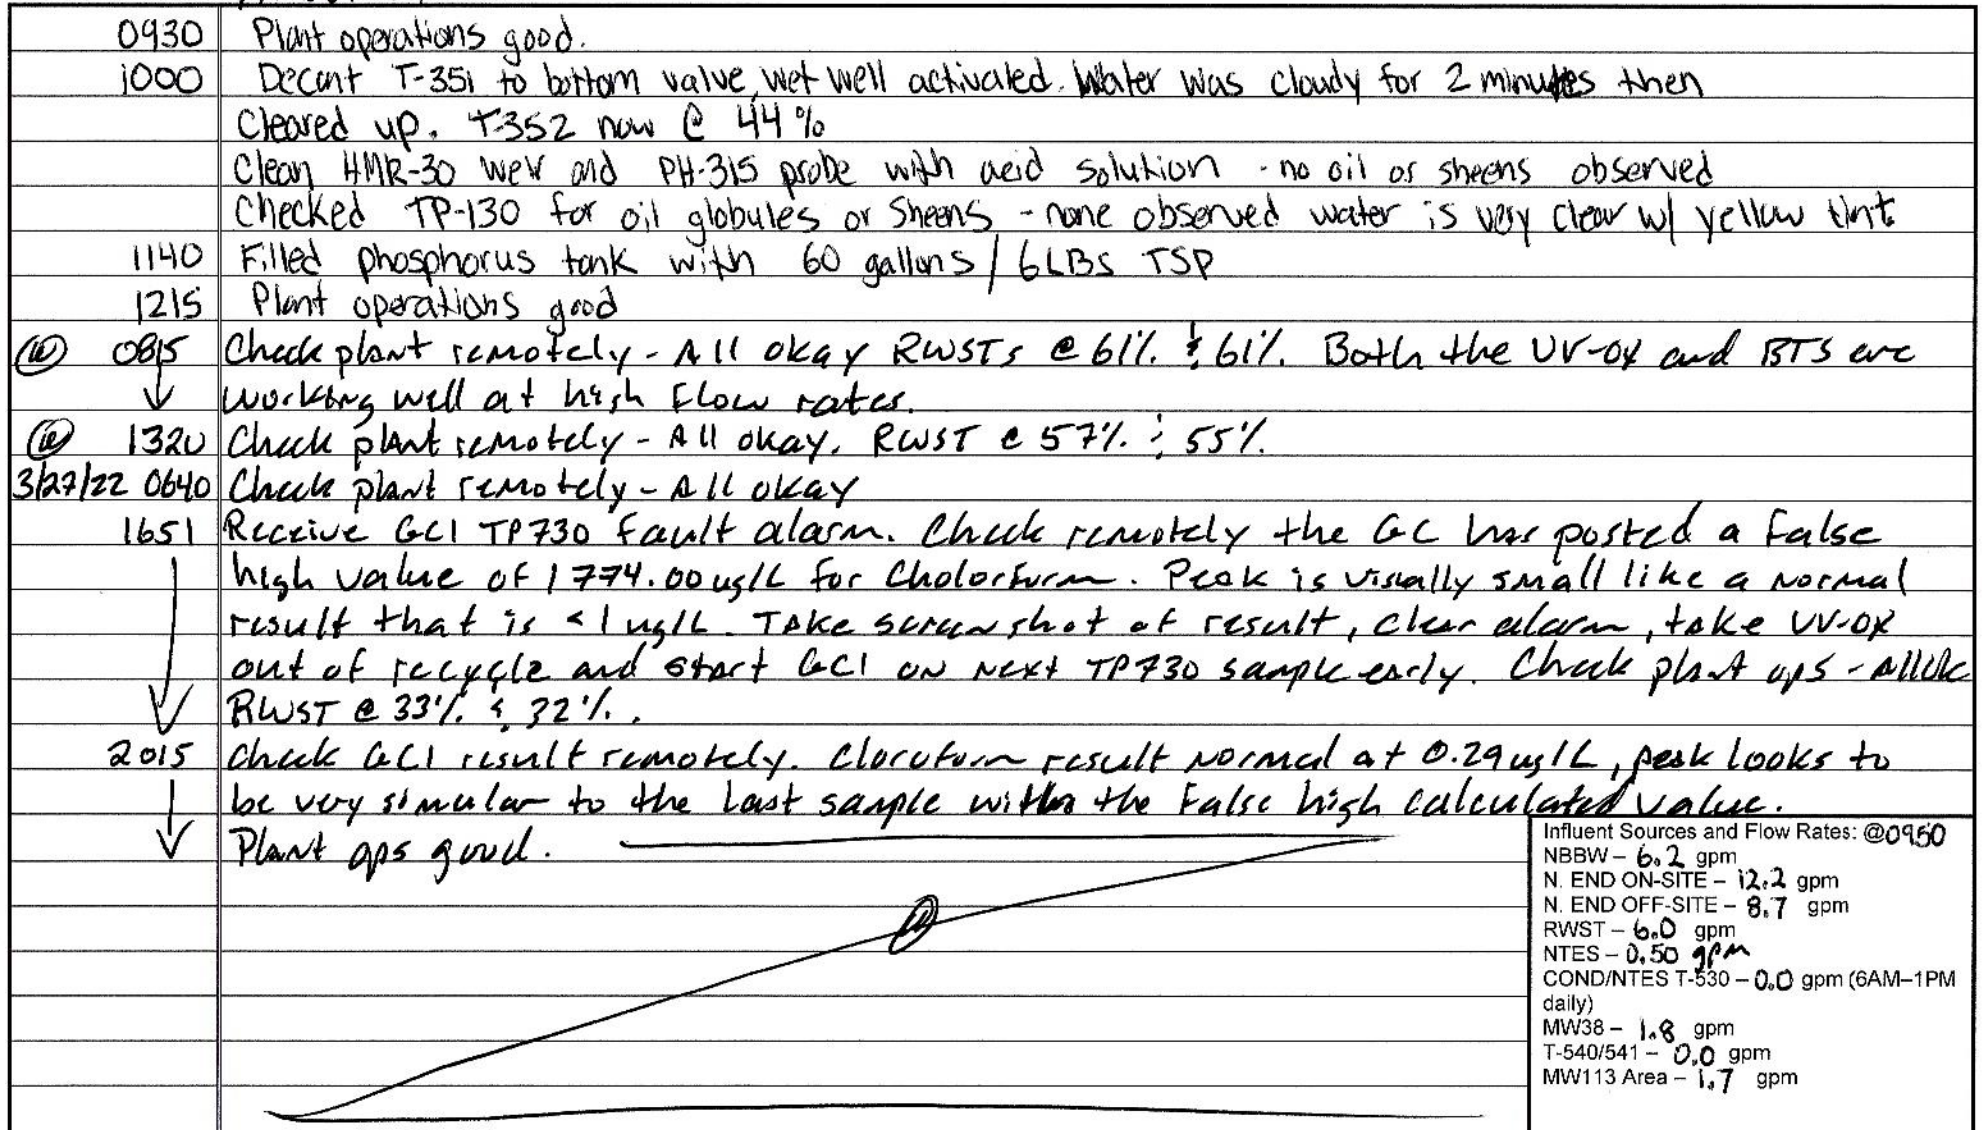 0930 Plant operations good.
1000 Decant T-351 to bottom valve, wet well activated. Water was cloudy for 2 minutes then
cleared up. T-352 now @ 44%
Clean HMR-30 weir and PH-315 probe with acid solution - no oil or sheens observed
Checked TP-130 for oil globules or sheens - none observed water is very clear w/ yellow tint
1140 Filled phosphorus tank with 60 gallons / 6LBs TSP
1215 Plant operations good
0815 Check plant remotely - All okay RWSTs @ 61% & 61%. Both the UV-OX and BTS are
working well at high flow rates.
1320 Check plant remotely - All okay. RWST @ 57% & 55%.
3/27/22 0640 Check plant remotely - All okay
1651 Receive GC1 TP730 Fault alarm. Check remotely the GC has posted a false
high value of 1774.00 ug/L for Choloroform. Peak is visually small like a normal
result that is <1 ug/L. Take screenshot of result, clear alarm, take UV-OX
out of recycle and start GC1 on next TP730 sample early. Check plant ops - All Ok
RWST @ 33% & 32%.
2015 Check GC1 result remotely. Cloroform result normal at 0.29 ug/L, peak looks to
be very simular to the last sample with the false high calculated value.
Plant ops good.
Influent Sources and Flow Rates: @0950
NBBW – 6.2 gpm
N. END ON-SITE – 12.2 gpm
N. END OFF-SITE – 8.7 gpm
RWST – 6.0 gpm
NTES – 0.50 gpm
COND/NTES T-530 – 0.0 gpm (6AM–1PM
daily)
MW38 – 1.8 gpm
T-540/541 – 0.0 gpm
MW113 Area – 1.7 gpm